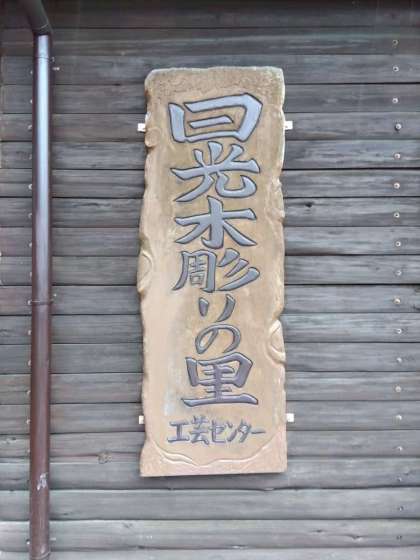 日光木彫りの里
工芸センター